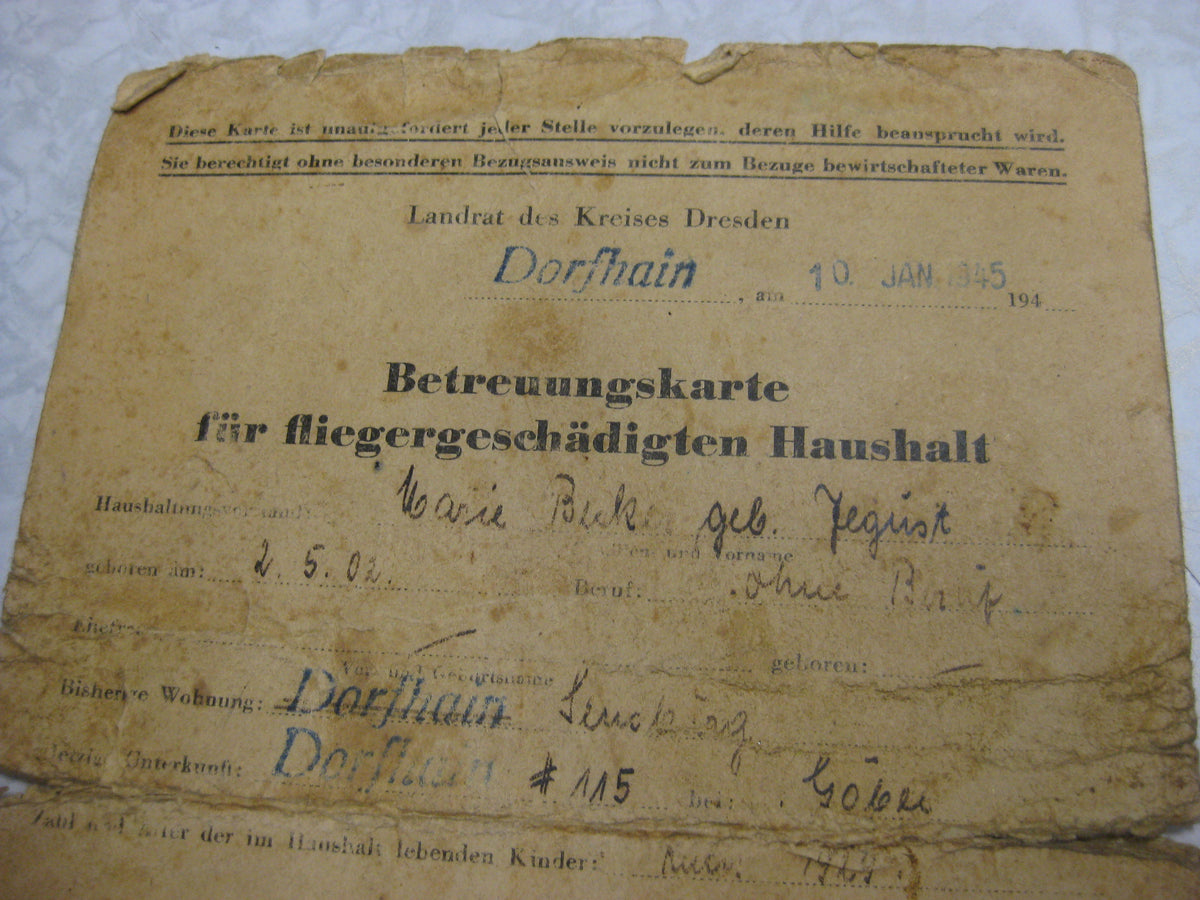 Diese Karte ist unaufgefordert jeder Stelle vorzulegen, deren Hilfe beansprucht wird.
Sie berechtigt ohne besonderen Bezugsausweis nicht zum Bezuge bewirtschafteter Waren.
Landrat des Kreises Dresden
Dorfhain, am 10. JAN. 1945 194
Betreuungskarte
für fliegergeschädigten Haushalt
Haushaltungsvorstand: Marie geb. Jegust
und Vorname
geboren am: 2. 5. 02. Beruf: ohne Beruf.
geboren: —
Vor- und Geburtsname
Bisherige Wohnung: Dorfhain
Jetzige Unterkunft: Dorfhain # 115 bei:
Zahl und Alter der im Haushalt lebenden Kinder: 1929.